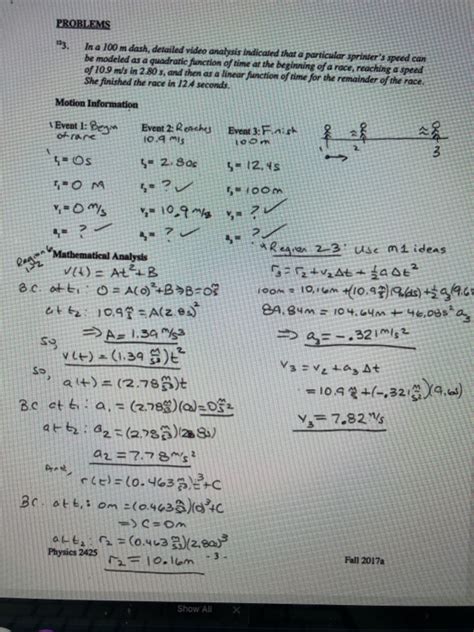 PROBLEMS
3. In a 100 m dash, detailed video analysis indicated that a particular sprinter's speed can
be modeled as a quadratic function of time at the beginning of a race, reaching a speed
of 10.9 m/s in 2.80 s, and then as a linear function of time for the remainder of the race.
She finished the race in 12.4 seconds.
Motion Information
Event 1: Begin of race
Event 2: Reaches 10.9 m/s
Event 3: Finish 100m
1 2 3
t₁ = 0s t₂ = 2.80s t₃ = 12.4s
r₁ = 0 M r₂ = ? ✓ r₃ = 100m
v₁ = 0 m/s v₂ = 10.9 m/s v₃ = ? ✓
a₁ = ? ✓ a₂ = ? ✓ a₃ = ? ✓
Region 1-2
Mathematical Analysis
v(t) = At²+B
B.C. at t₁: 0 = A(0)²+B ⇒ B=0 m/s
at t₂: 10.9 m/s = A(2.8s)²
⇒ A = 1.39 m/s³
so, v(t) = (1.39 m/s³)t²
so, a(t) = (2.78 m/s³)t
B.C at t₁: a₁ = (2.78 m/s³)(0s) = 0 m/s²
at t₂: a₂ = (2.78 m/s³)(2.8s)
a₂ = 7.78 m/s²
And, r(t) = (0.463 m/s³)t³+C
B.C. at t₁: 0m = (0.463 m/s³)(0)³+C
⇒ C = 0m
at t₂: r₂ = (0.463 m/s³)(2.80)³
r₂ = 10.16m
* Region 2-3: Use M1 ideas
r₃ = r₂ + v₂Δt + ½ a Δt²
100m = 10.16m + (10.9 m/s)(9.6s) + ½ a₃(9.6s
89.84m = 104.64m + 46.08s² a₃
⇒ a₃ = -.321 m/s²
v₃ = v₂ + a₃ Δt
= 10.9 m/s + (-.321 m/s²)(9.6s)
v₃ = 7.82 m/s
Physics 2425
- 3 -
Fall 2017a
Show All X